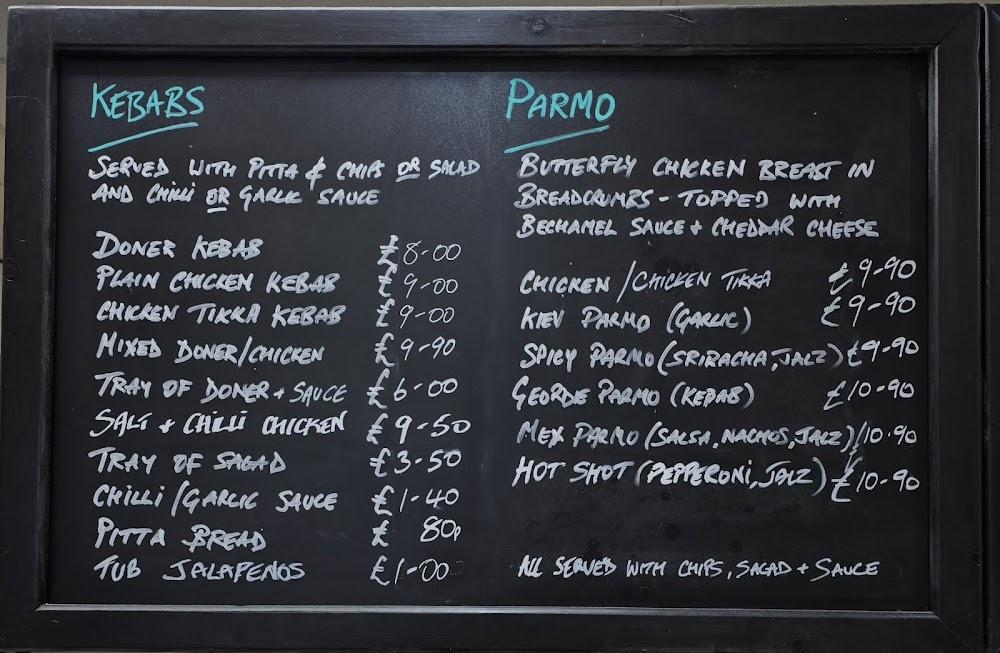 KEBABS
SERVED WITH PITTA & CHIPS OR SALAD
AND CHILLI OR GARLIC SAUCE
DONER KEBAB £8-00
PLAIN CHICKEN KEBAB £9-00
CHICKEN TIKKA KEBAB £9-00
MIXED DONER/CHICKEN £9-90
TRAY OF DONER + SAUCE £6-00
SALT + CHILLI CHICKEN £9-50
TRAY OF SALAD £3-50
CHILLI/GARLIC SAUCE £1-40
PITTA BREAD £ 80p
TUB JALAPENOS £1-00
PARMO
BUTTERFLY CHICKEN BREAST IN
BREADCRUMBS - TOPPED WITH
BECHAMEL SAUCE + CHEDDAR CHEESE
CHICKEN/CHICKEN TIKKA £9-90
KIEV PARMO (GARLIC) £9-90
SPICY PARMO (SRIRACHA, JALZ) £9-90
GEORDIE PARMO (KEBAB) £10-90
MEX PARMO (SALSA, NACHOS, JALZ) £10.90
HOT SHOT (PEPPERONI, JALZ) £10-90
ALL SERVED WITH CHIPS, SALAD + SAUCE